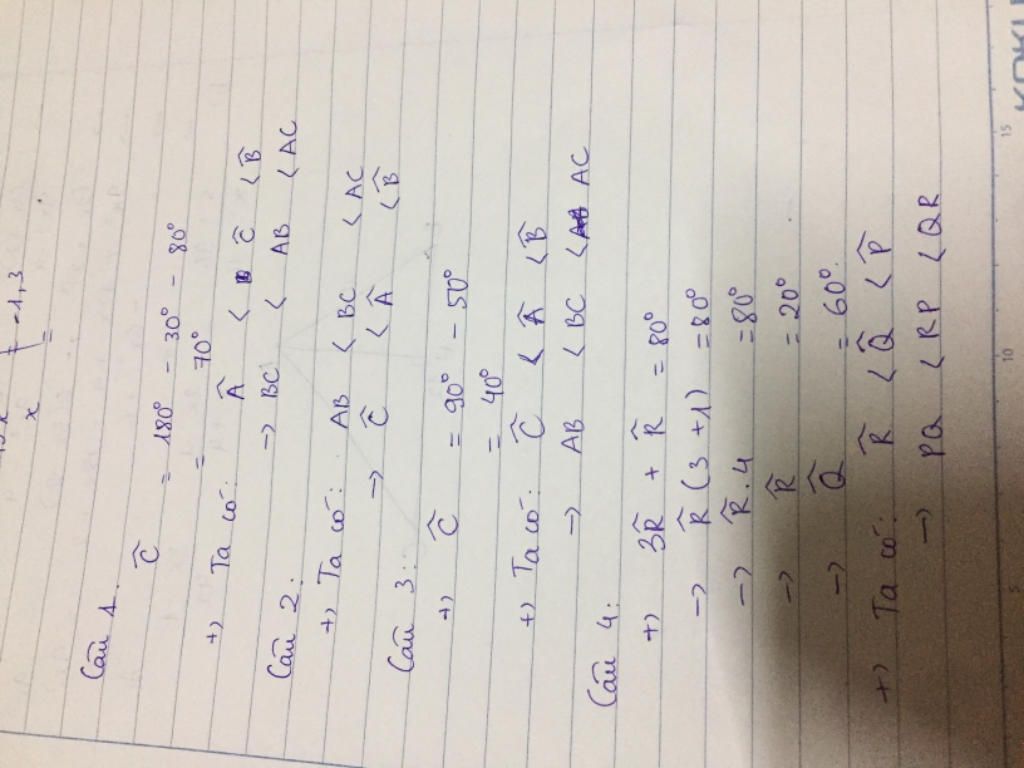 x
=
-1,3
Câu 1.
Ĉ = 180° - 30° - 80°
= 70°
+) Ta có: Â < Ĉ < B̂
-> BC < AB < AC
Câu 2:
+) Ta có: AB < BC < AC
-> Ĉ < Â < B̂
Câu 3:
+) Ĉ = 90° - 50°
= 40°
+) Ta có: Ĉ < Â < B̂
-> AB < BC < AC
Câu 4:
+) 3R̂ + R̂ = 80°
-> R̂ (3 +1) = 80°
-> R̂.4 = 80°
-> R̂ = 20°
-> Q̂ = 60°.
+) Ta có: R̂ < Q̂ < P̂
-> PQ < RP < QR
5
10
15